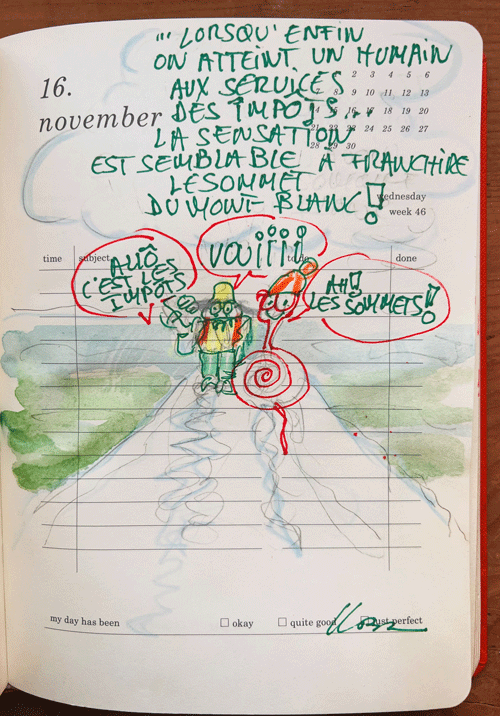 ... LORSQU' ENFIN
ON ATTEINT UN HUMAIN
AUX SERVICES
DES IMPOTS...
LA SENSATION
EST SEMBLABLE À FRANCHIRE
LE SOMMET
DU MONT BLANC !
16.
november
2 3 4 5 6
8 9 10 11 12 13
14 15 16 18 19 20
21 22 23 24 25 26 27
28 29 30
wednesday
week 46
time subject to do done
ALLÔ
C'EST LES
IMPÔTS
VOUIIII
AH!
LES SOMMETS!
my day has been okay quite good just perfect